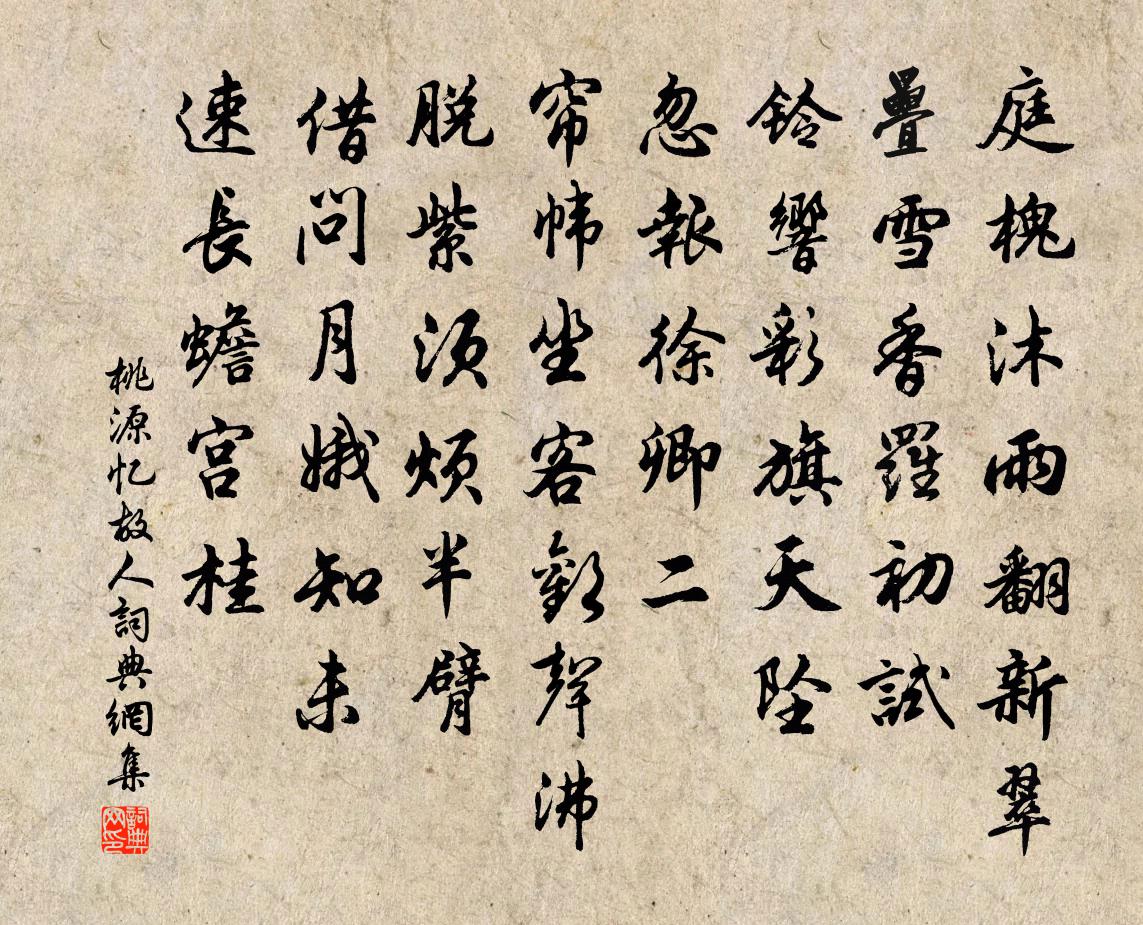 庭槐沐雨翻新翠
疊雪香羅初試
鈴響彩旗天墜
忽報徐卿二
帘幃坐客歡聲沸
脫紫須煩半臂
借問月娥知未
速長蟾宮桂
桃源忆故人詞典網集
詞典网印